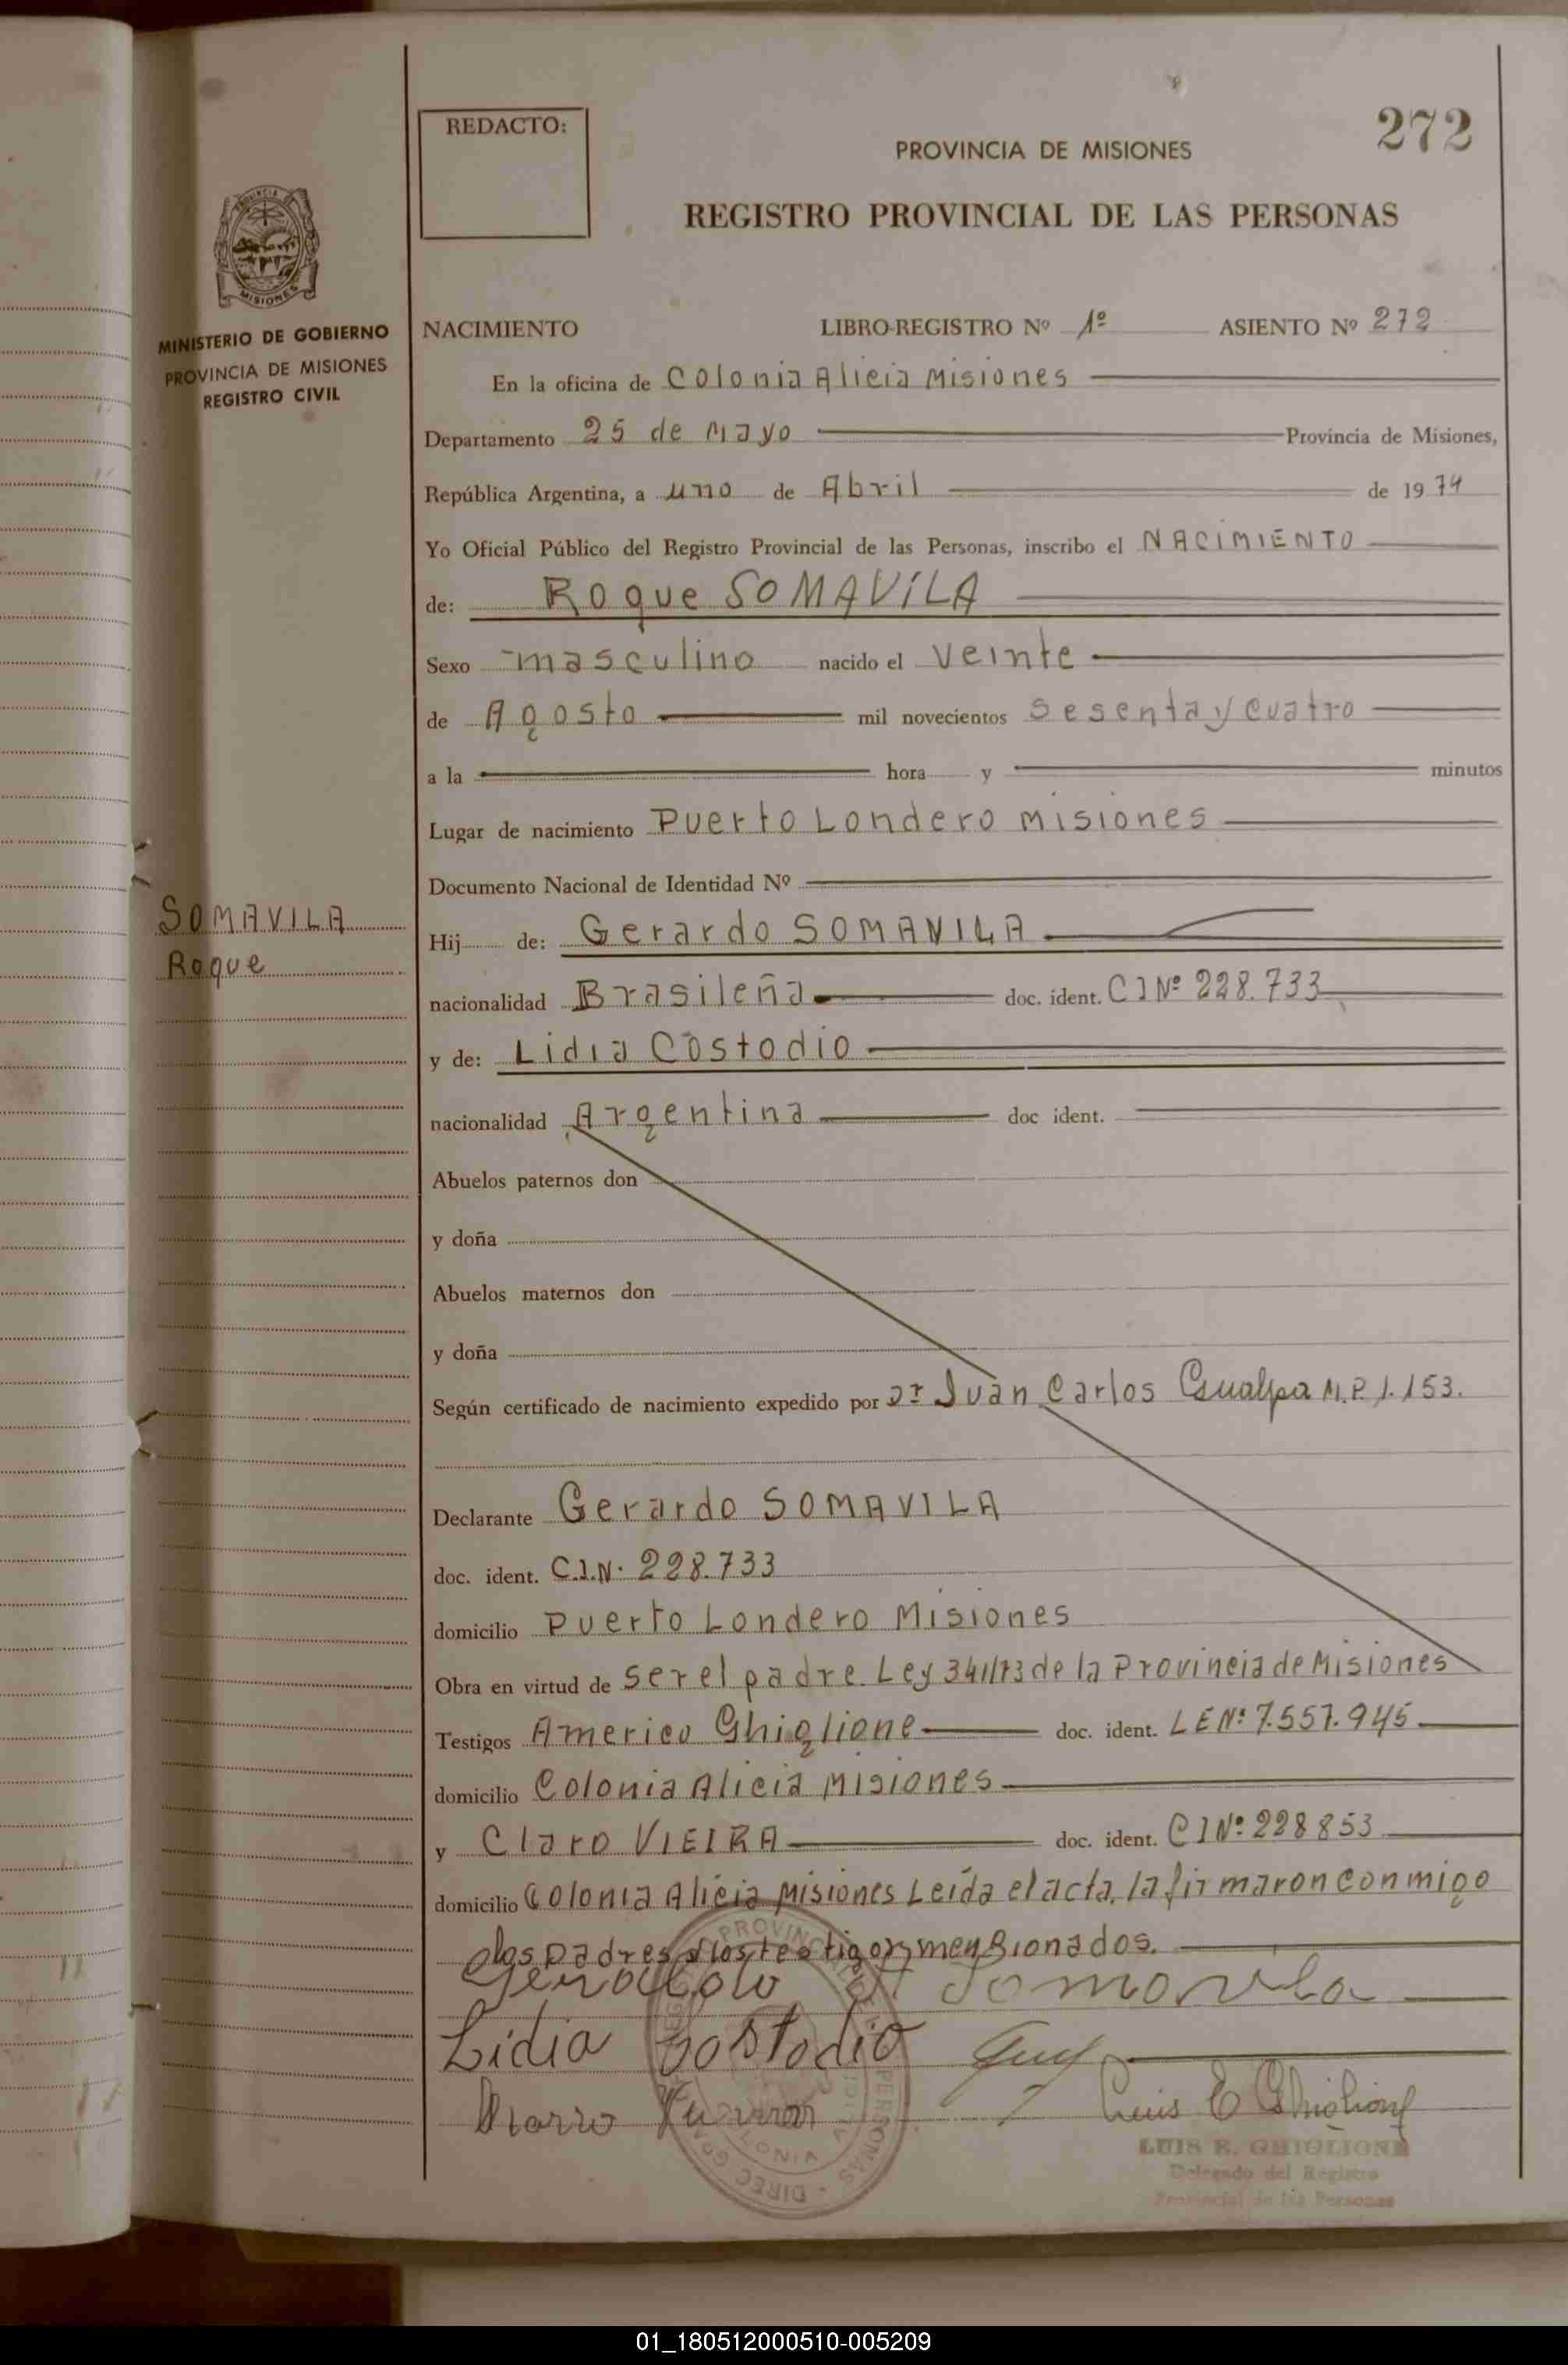 272
REDACTO:
PROVINCIA DE MISIONES
REGISTRO PROVINCIAL DE LAS PERSONAS
PROVINCIA DE
MISIONES
MINISTERIO DE GOBIERNO
PROVINCIA DE MISIONES
REGISTRO CIVIL
NACIMIENTO LIBRO-REGISTRO Nº 1º ASIENTO Nº 272
En la oficina de Colonia Alicia Misiones
Departamento 25 de Mayo Provincia de Misiones,
República Argentina, a uno de Abril de 1974
Yo Oficial Público del Registro Provincial de las Personas, inscribo el NACIMIENTO
de: Roque SOMAVILA
Sexo masculino nacido el veinte
de Agosto mil novecientos sesenta y cuatro
a la hora y minutos
Lugar de nacimiento Puerto Londero Misiones
Documento Nacional de Identidad Nº
SOMAVILA
Roque
Hij de: Gerardo SOMAVILA
nacionalidad Brasileña doc. ident. C I Nº 228.733
y de: Lidia Costodio
nacionalidad Argentina doc ident.
Abuelos paternos don
y doña
Abuelos maternos don
y doña
Según certificado de nacimiento expedido por Dr Juan Carlos Gualpa M.P. 1.153.
Declarante Gerardo SOMAVILA
doc. ident. C.I.N. 228.733
domicilio Puerto Londero Misiones
Obra en virtud de ser el padre. Ley 341/73 de la Provincia de Misiones
Testigos Americo Ghiglione doc. ident. L E Nº 7.557.945
domicilio Colonia Alicia Misiones
y Claro VIEIRA doc. ident. C I Nº 228853
domicilio Colonia Alicia Misiones Leída el acta, la firmaron conmigo
los padres y los testigos mensionados.
Gerardo Somavila
Lidia Costodio
Luis E Ghiglione
LUIS E. GHIGLIONE
Delegado del Registro
Provincial de las Personas
01_180512000510-005209